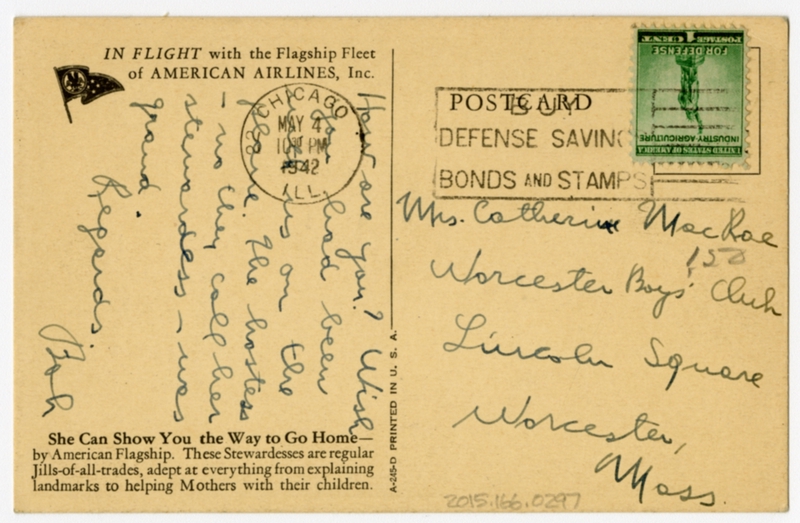 IN FLIGHT with the Flagship Fleet
of AMERICAN AIRLINES, Inc.
How are you? Wish
you had been
with us on the
plane. The hostess
no they call her
stewardess – was
grand.
Regards.
Bob
She Can Show You the Way to Go Home—
by American Flagship. These Stewardesses are regular
Jills-of-all-trades, adept at everything from explaining
landmarks to helping Mothers with their children.
A-245-D PRINTED IN U. S. A.
CHICAGO
MAY 4
PM
1942
ILL.
POSTCARD
BUY
DEFENSE SAVING
BONDS AND STAMPS
UNITED STATES OF AMERICA
INDUSTRY AGRICULTURE
FOR DEFENSE
1 CENT
POSTAGE
Mrs. Catherine MacRae
150
Worcester Boys' Club
Lincoln Square
Worcester,
Mass.
2015.166.0297